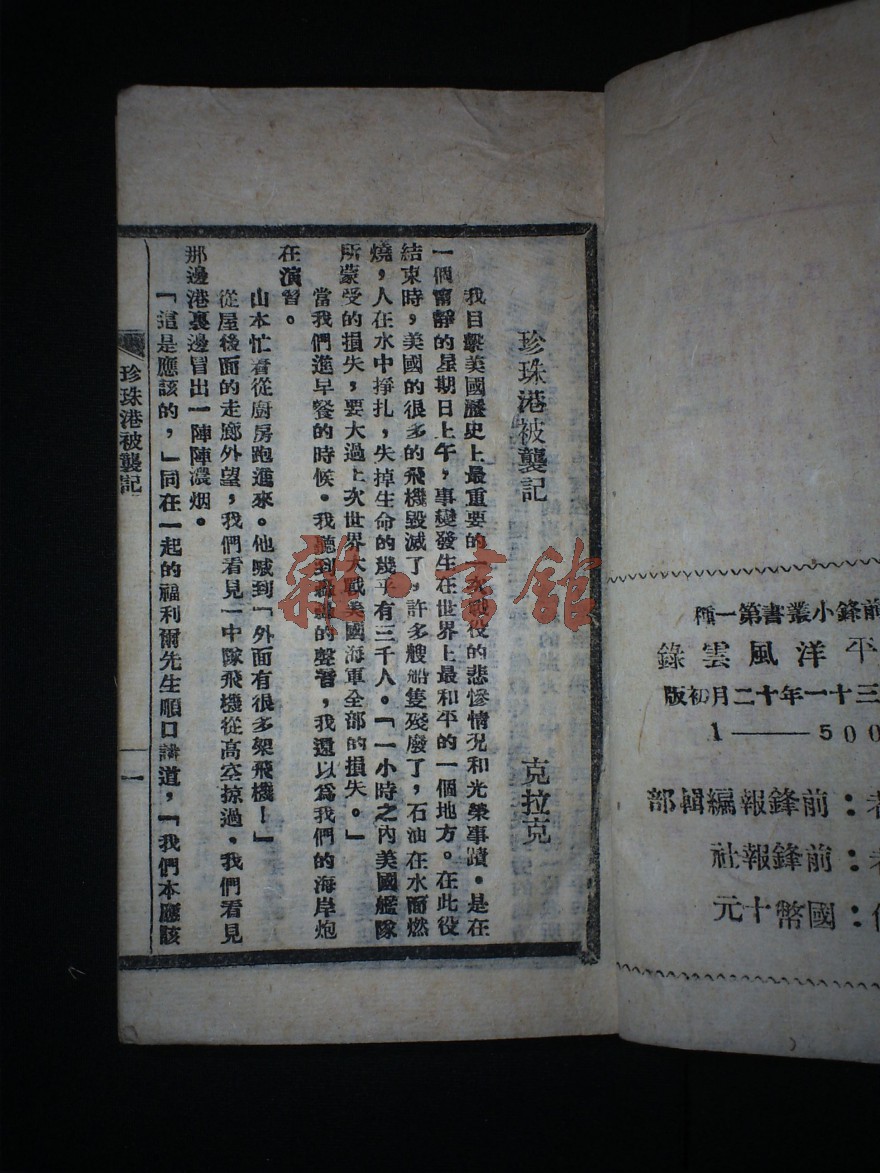 珍珠港被襲記
克拉克
我目擊美國歷史上最重要的一次戰役的悲慘情況和光榮事蹟。是在
一個甯靜的星期日上午，事變發生在世界上最和平的一個地方。在此役
結束時，美國的很多的飛機毀滅了，許多艘船隻殘廢了，石油在水面燃
燒，人在水中掙扎，失掉生命的幾乎有三千人。「一小時之內美國艦隊
所蒙受的損失，要大過上次世界大戰美國海軍全部的損失。」
當我們進早餐的時候。我聽到的聲響，我還以爲我們的海岸炮
在演習。
山本忙着從廚房跑進來。他喊到「外面有很多架飛機！」
從屋後面的走廊外望，我們看見一中隊飛機從高空掠過。我們看見
那邊港裏邊冒出一陣陣濃烟。
「這是應該的，」同在一起的福利爾先生順口講道，「我們本應該
珍珠港被襲記
一
雜·書館
前鋒小叢書第一種
平洋風雲錄
三十一年十二月初版
1——500
者：前鋒報編輯部
者：前鋒報社
：國幣十元